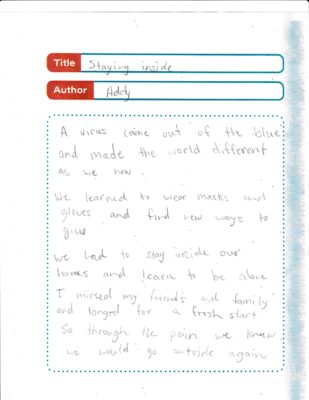 Title Staying inside
Author Addy
A virus came out of the blue
and made the world different
as we new.
We learned to wear masks and
gloves and find new ways to
give
We had to stay inside our
homes and learn to be alone
I missed my friends and family
and longed for a fresh start
So through the pain we knew
we would go outside again